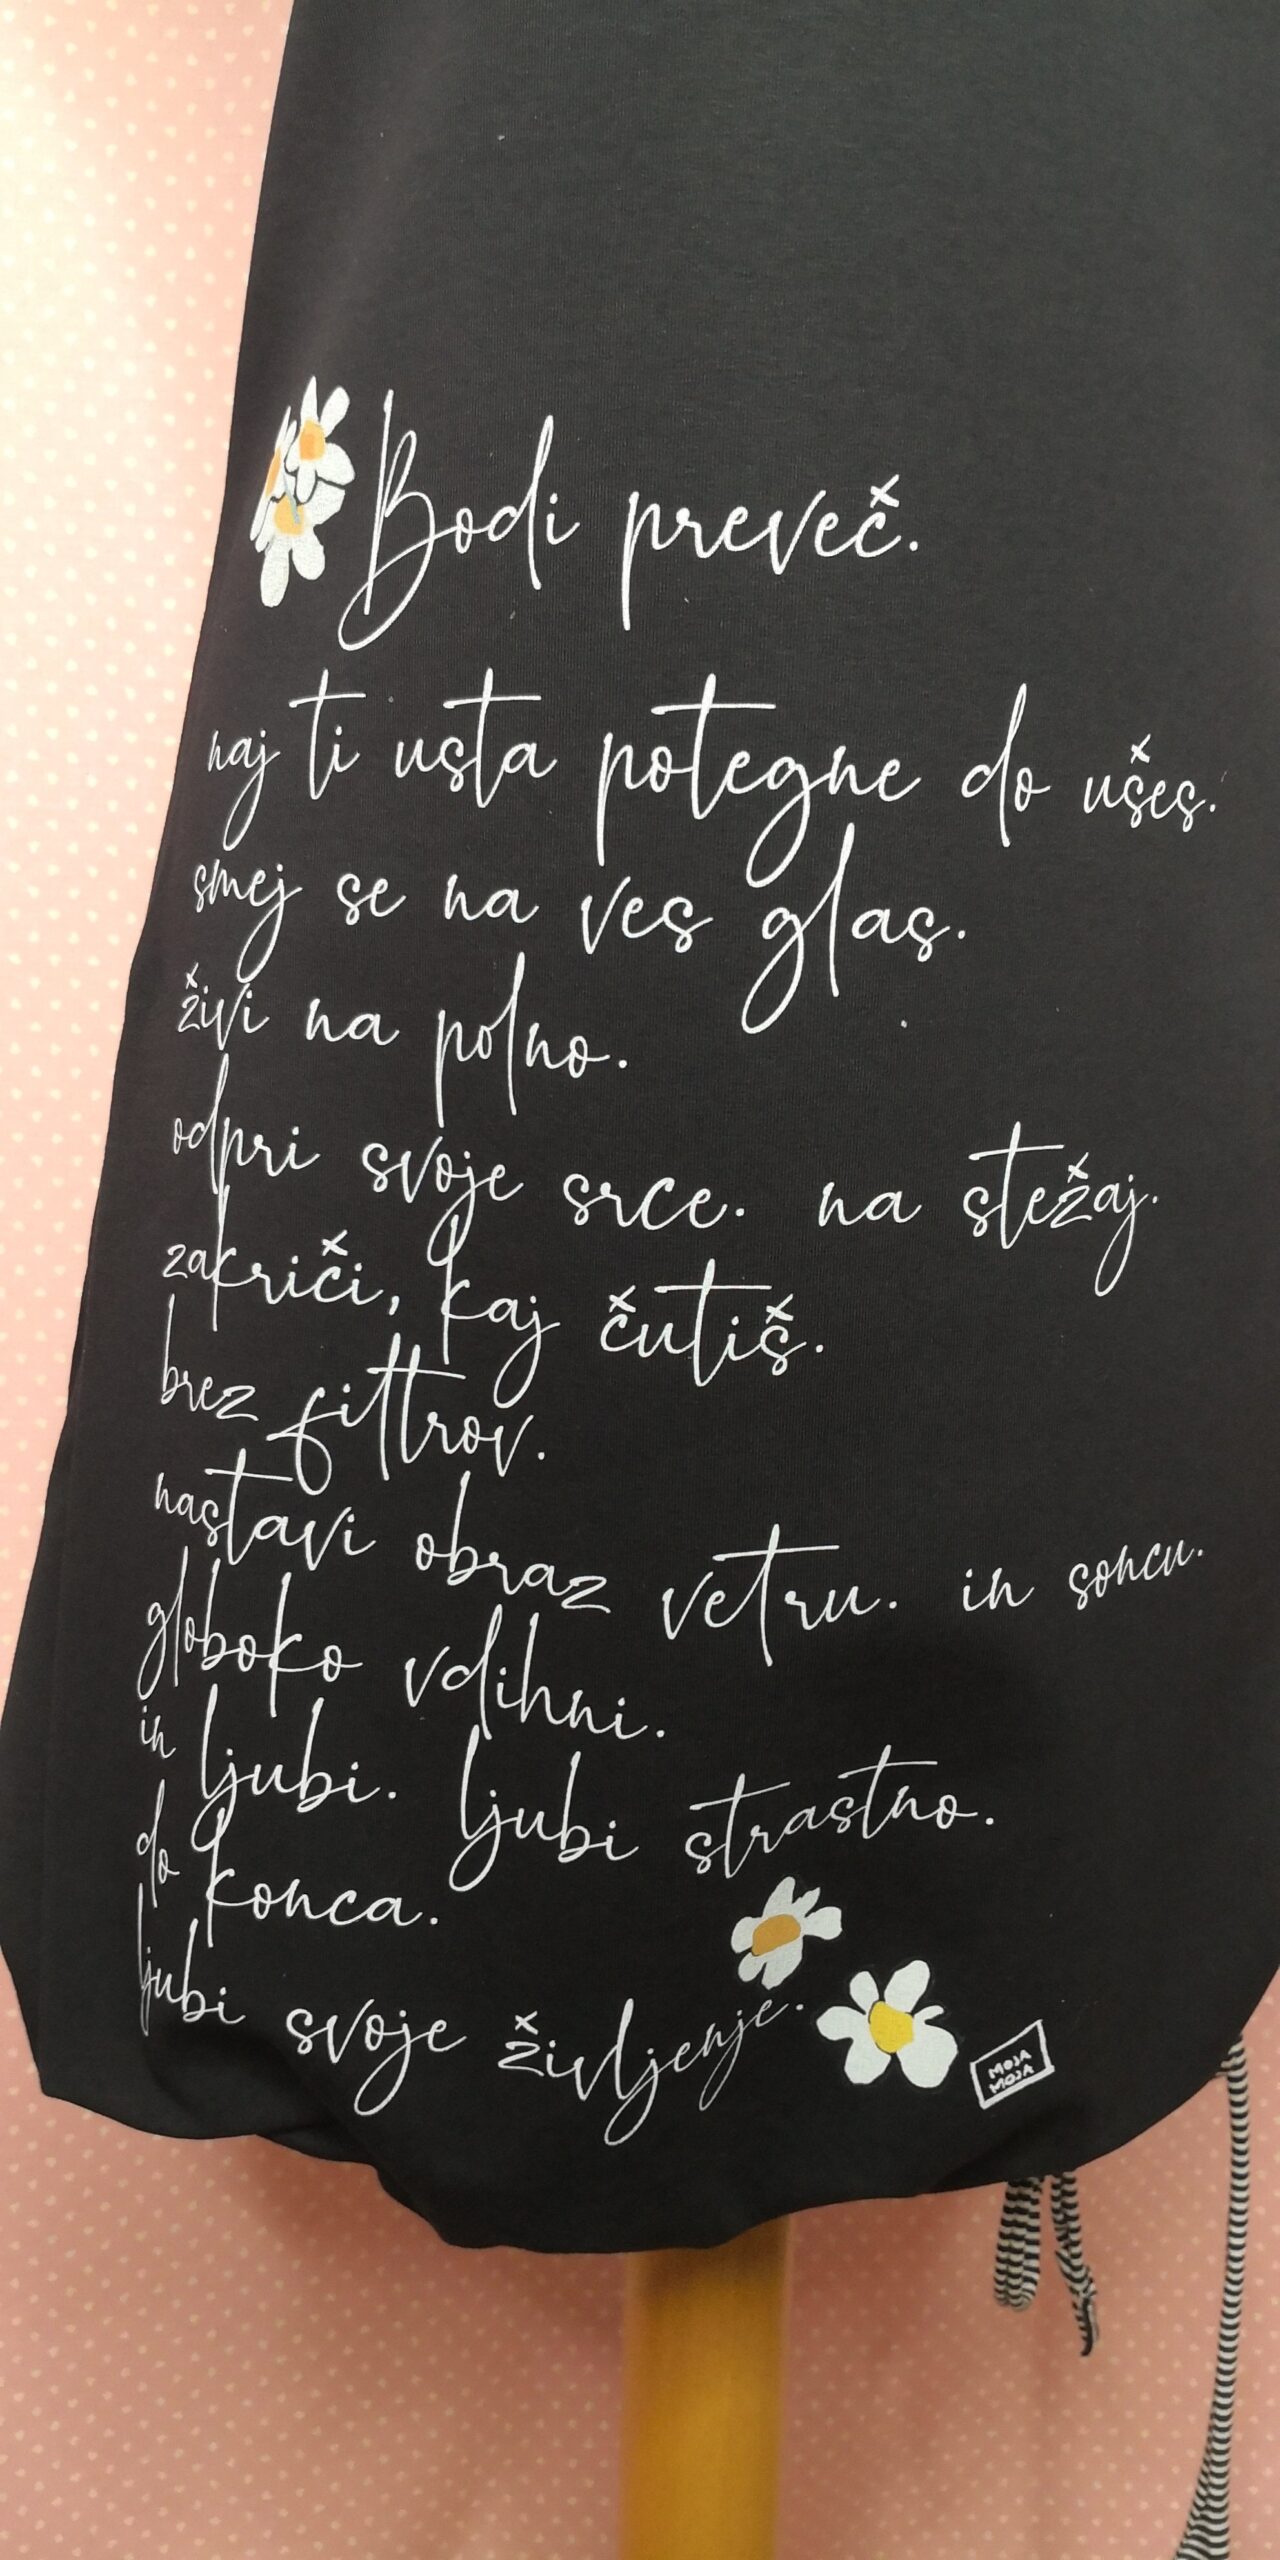 Bodi preveč.
naj ti usta potegne do ušes.
smej se na ves glas.
živi na polno.
odpri svoje srce. na stežaj.
zakriči, kaj čutiš.
brez filtrov.
nastavi obraz vetru. in soncu.
globoko vdihni.
in ljubi. ljubi strastno.
do konca.
ljubi svoje življenje.
MOJA
MOJA